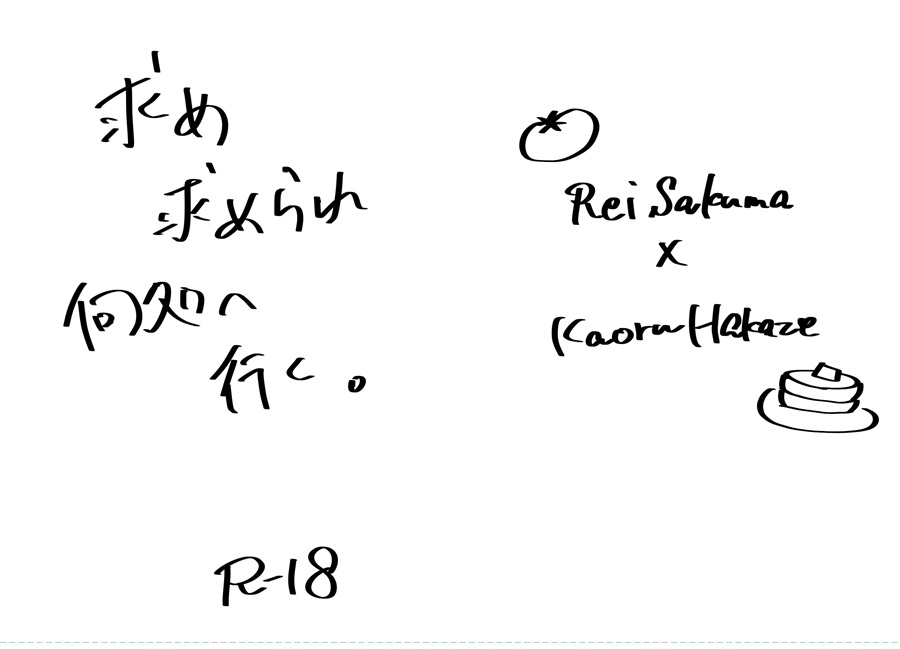 求め
求められ
何知へ
行く。
Rei Sakuma
x
Kaoru Hakaze
R-18